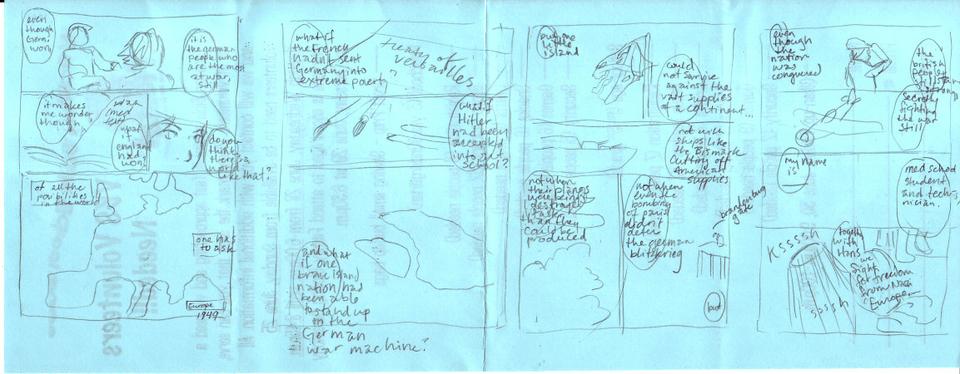 even
though
Germ.
won
it is
the german
people who
are the most
at war,
still
it makes
me wonder
though
what
if
england
had
won?
do you
think
there's a
world
like that?
of all the
possibilities
in the world
one has
to ask
Europe
1949
what if
the French
hadn't sent
Germany into
extreme poverty?
treaty of
versailles
what if
Hitler
had been
accepted
into art
school?
and what
if one
brave island
nation had
been able
to stand up
to the
German
war machine?
puny
little
island
could
not survive
against the
vast supplies
of a continent...
not with
ships like
the Bismark
cutting off
American
supplies
not when
their planes
were being
destroyed
faster
than they
could be
produced
not when
even the
bombing
of paris
didn't
deter
the german
blitzkrieg
brandenburg
gate
but
even
though
the
nation
was
conquered
the
british
people
still
secretly
fighting
the war
still
my name
is
med school
student
and tech-
nician.
Kssssh
sssssh
together
with
Hans
we
fight
for freedom
from Nazi
Europe